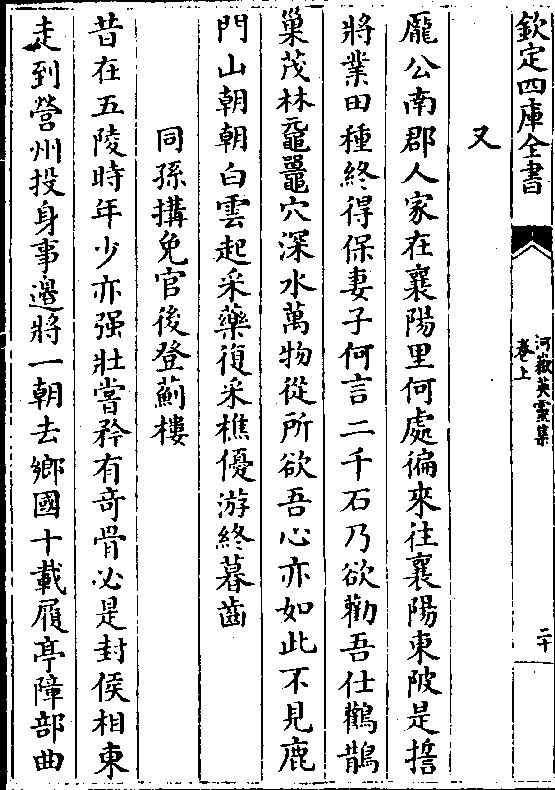 欽定四庫全書
河嶽英靈集
卷上
二十
又
龎公南郡人家在襄陽里何處偏來往襄陽東陂是誓
將業田種終得保妻子何言二千石乃欲勸吾仕鸛鵲
巢茂林黿鼉穴深水萬物從所欲吾心亦如此不見鹿
門山朝朝白雲起采藥復采樵優游終暮齒
同孫搆免官後登薊樓
昔在五陵時年少亦强壯嘗矜有奇骨必是封侯相東
走到營州投身事邊將一朝去鄉國十載履亭障部曲